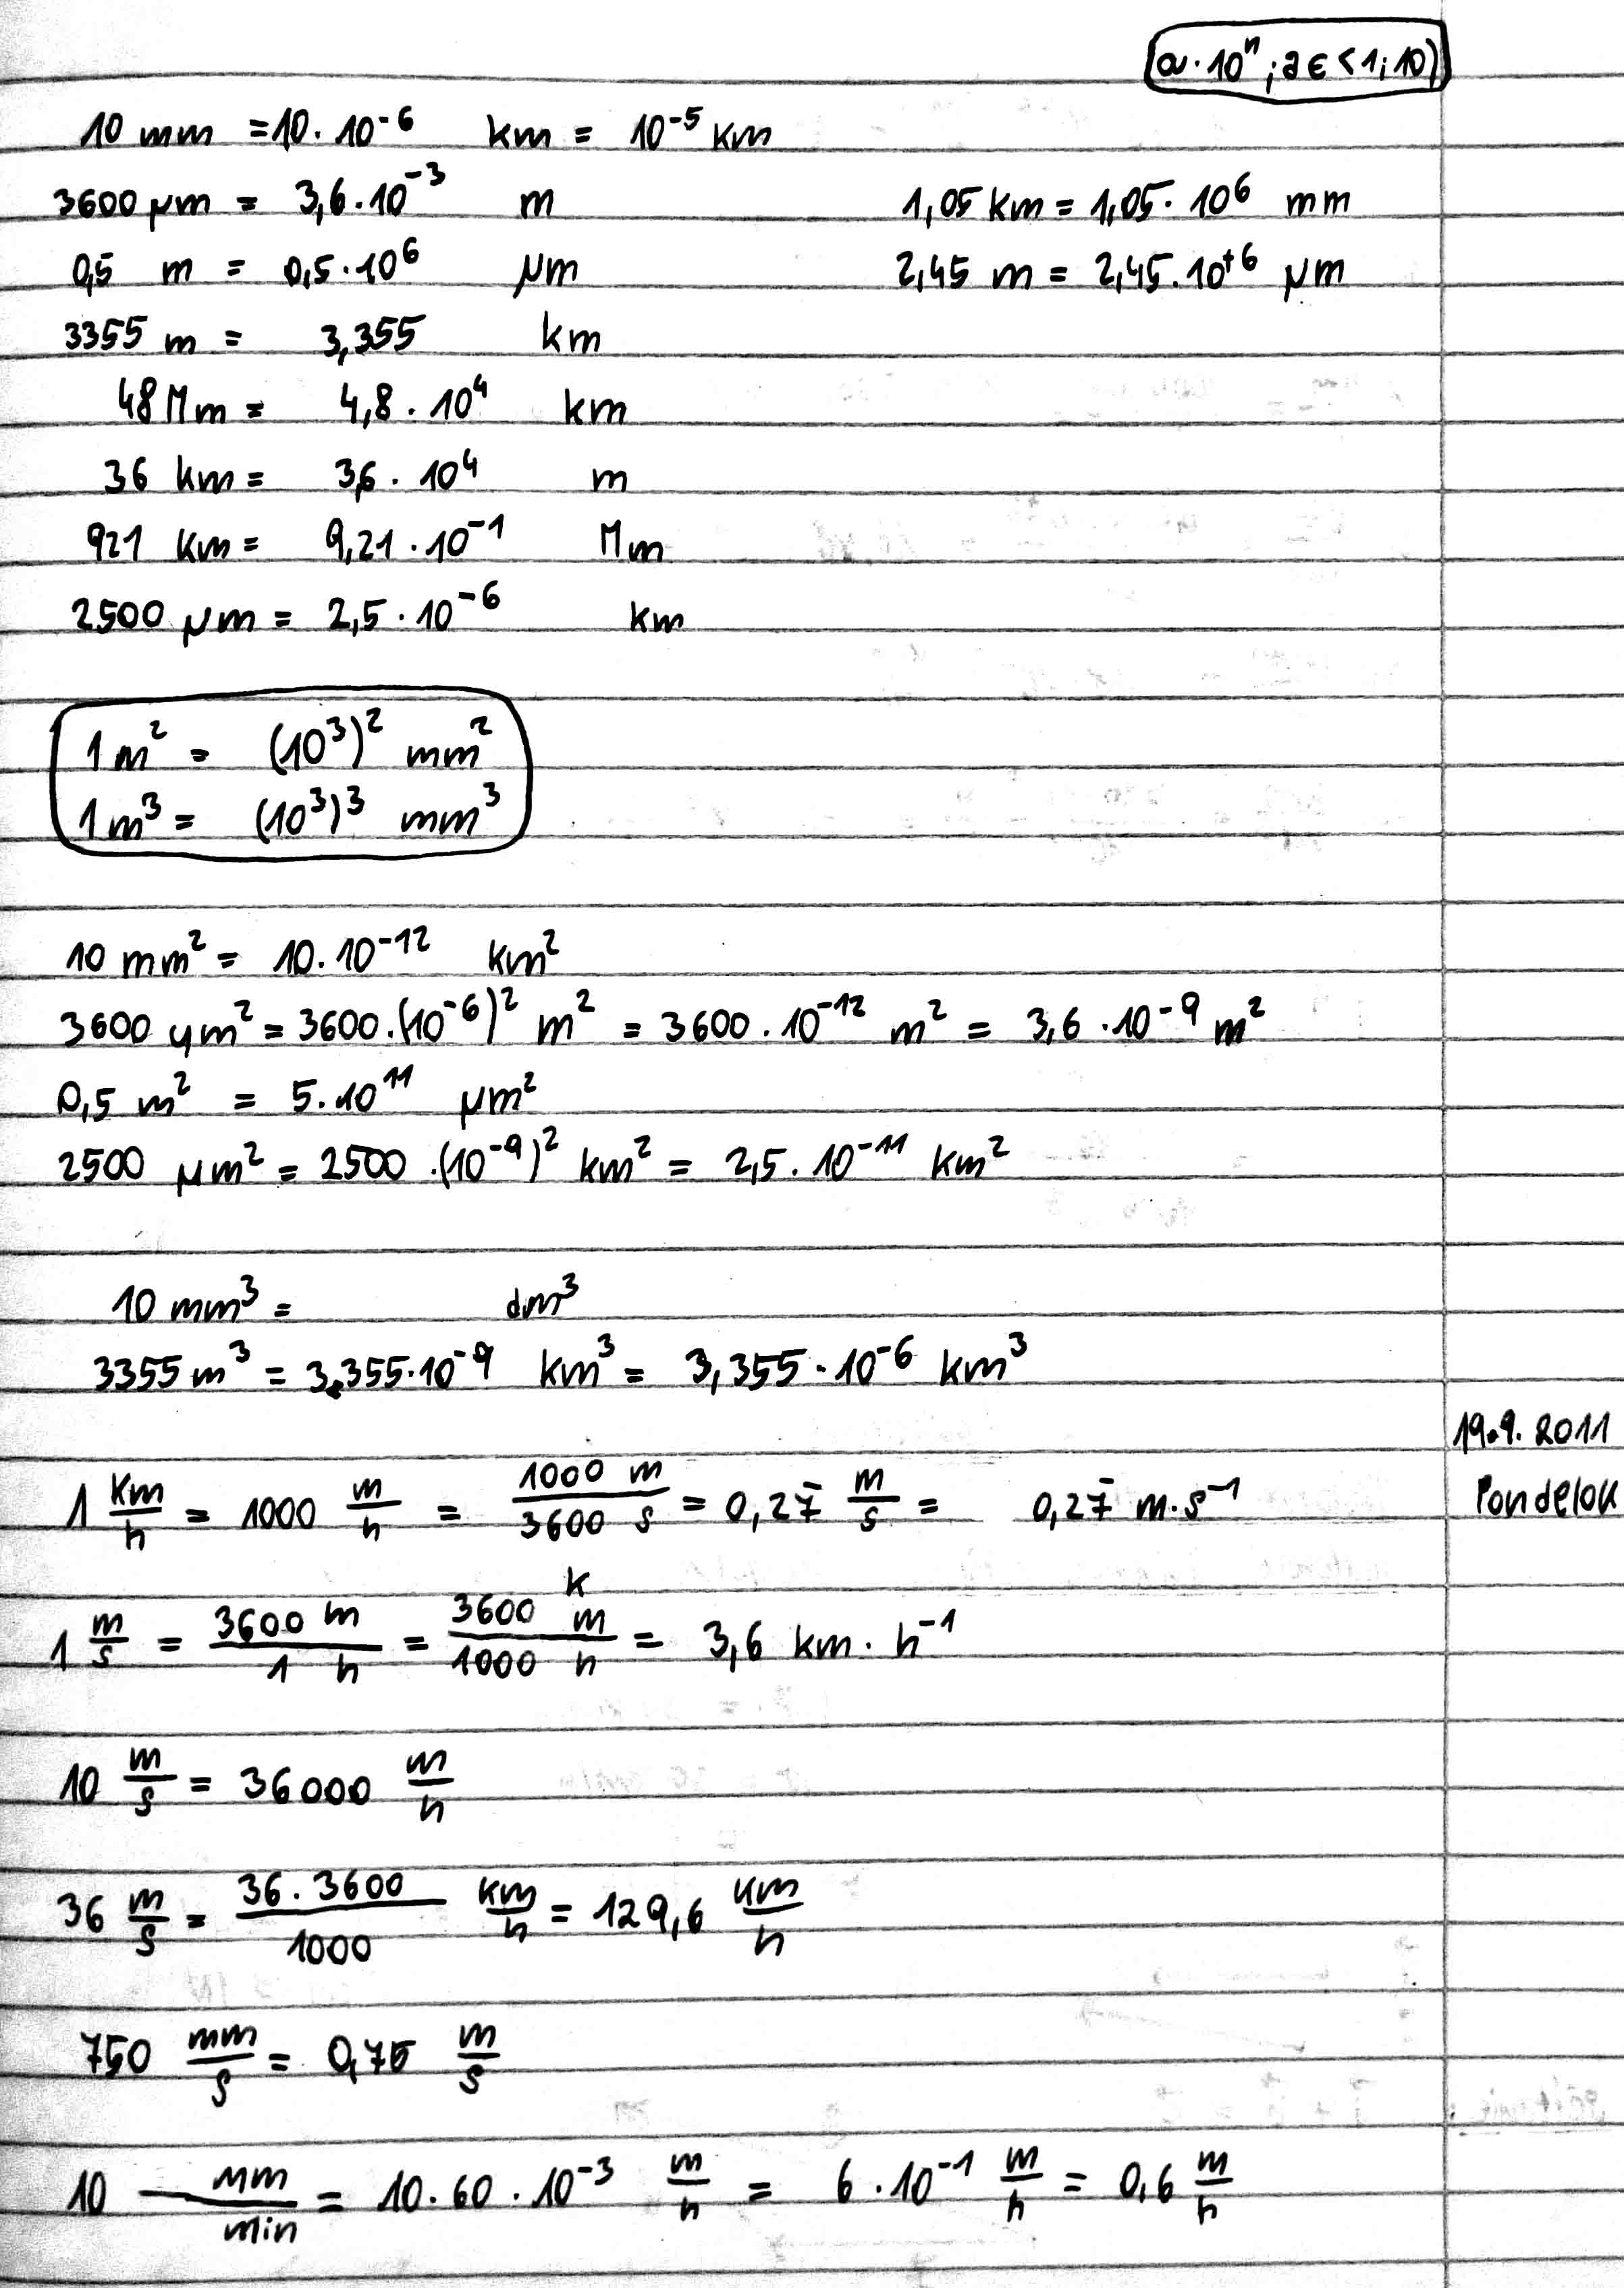 a·10ⁿ ; a ∈ <1;10)
10 mm = 10·10⁻⁶ km = 10⁻⁵ km
3600 μm = 3,6·10⁻³ m 1,05 km = 1,05·10⁶ mm
0,5 m = 0,5·10⁶ μm 2,45 m = 2,45·10⁺⁶ μm
3355 m = 3,355 km
48 Mm = 4,8·10⁴ km
36 km = 3,6·10⁴ m
921 km = 9,21·10⁻¹ Mm
2500 μm = 2,5·10⁻⁶ km
1 m² = (10³)² mm²
1 m³ = (10³)³ mm³
10 mm² = 10·10⁻¹² km²
3600 μm² = 3600·(10⁻⁶)² m² = 3600·10⁻¹² m² = 3,6·10⁻⁹ m²
0,5 m² = 5·10¹¹ μm²
2500 μm² = 2500·(10⁻⁹)² km² = 2,5·10⁻¹¹ km²
10 mm³ = dm³
3355 m³ = 3355·10⁻⁹ km³ = 3,355·10⁻⁶ km³
19.9.2011
Pondelok
1 km/h = 1000 m/h = 1000 m / 3600 s = 0,27̄ m/s = 0,27̄ m·s⁻¹
1 m/s = 3600 m / 1 h = 3600 km / 1000 h = 3,6 km·h⁻¹
10 m/s = 36000 m/h
36 m/s = 36·3600 / 1000 km/h = 129,6 km/h
750 mm/s = 0,75 m/s
10 mm/min = 10·60·10⁻³ m/h = 6·10⁻¹ m/h = 0,6 m/h